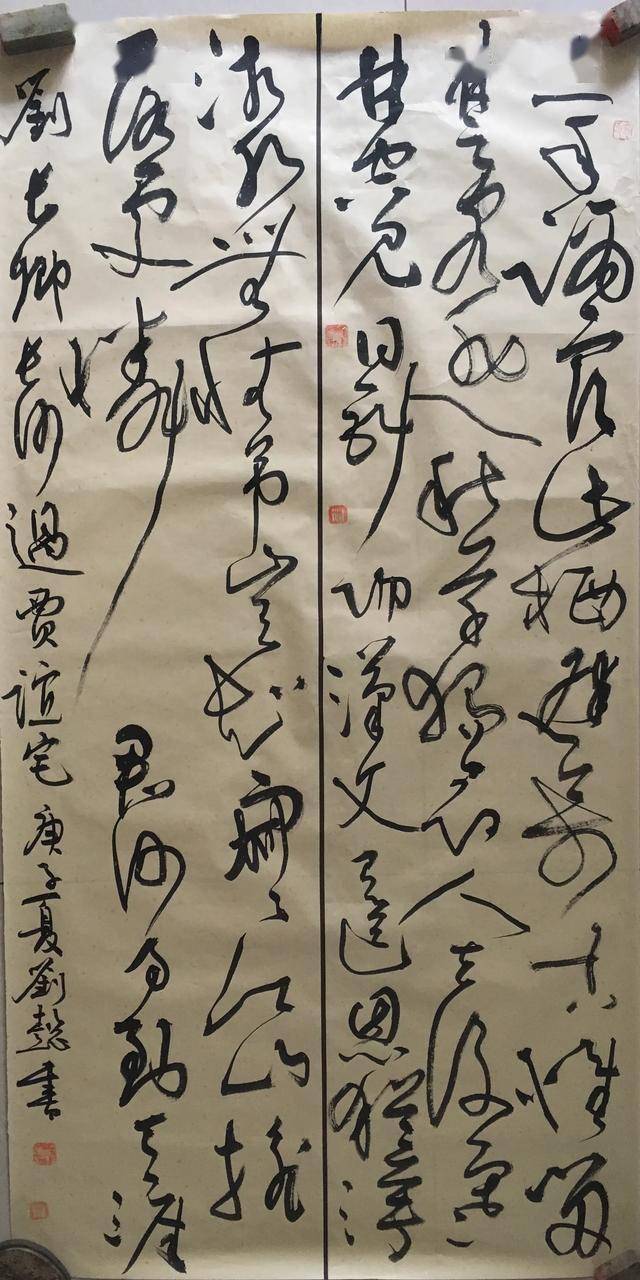 三年謫宦此栖遲萬古惟留
楚客悲秋草獨尋人去後寒
林空見日斜時漢文有道恩猶薄
湘水無情吊豈知寂寂江山搖
落處憐君何事到天涯
劉長卿長沙過賈誼宅庚子夏劉懿書